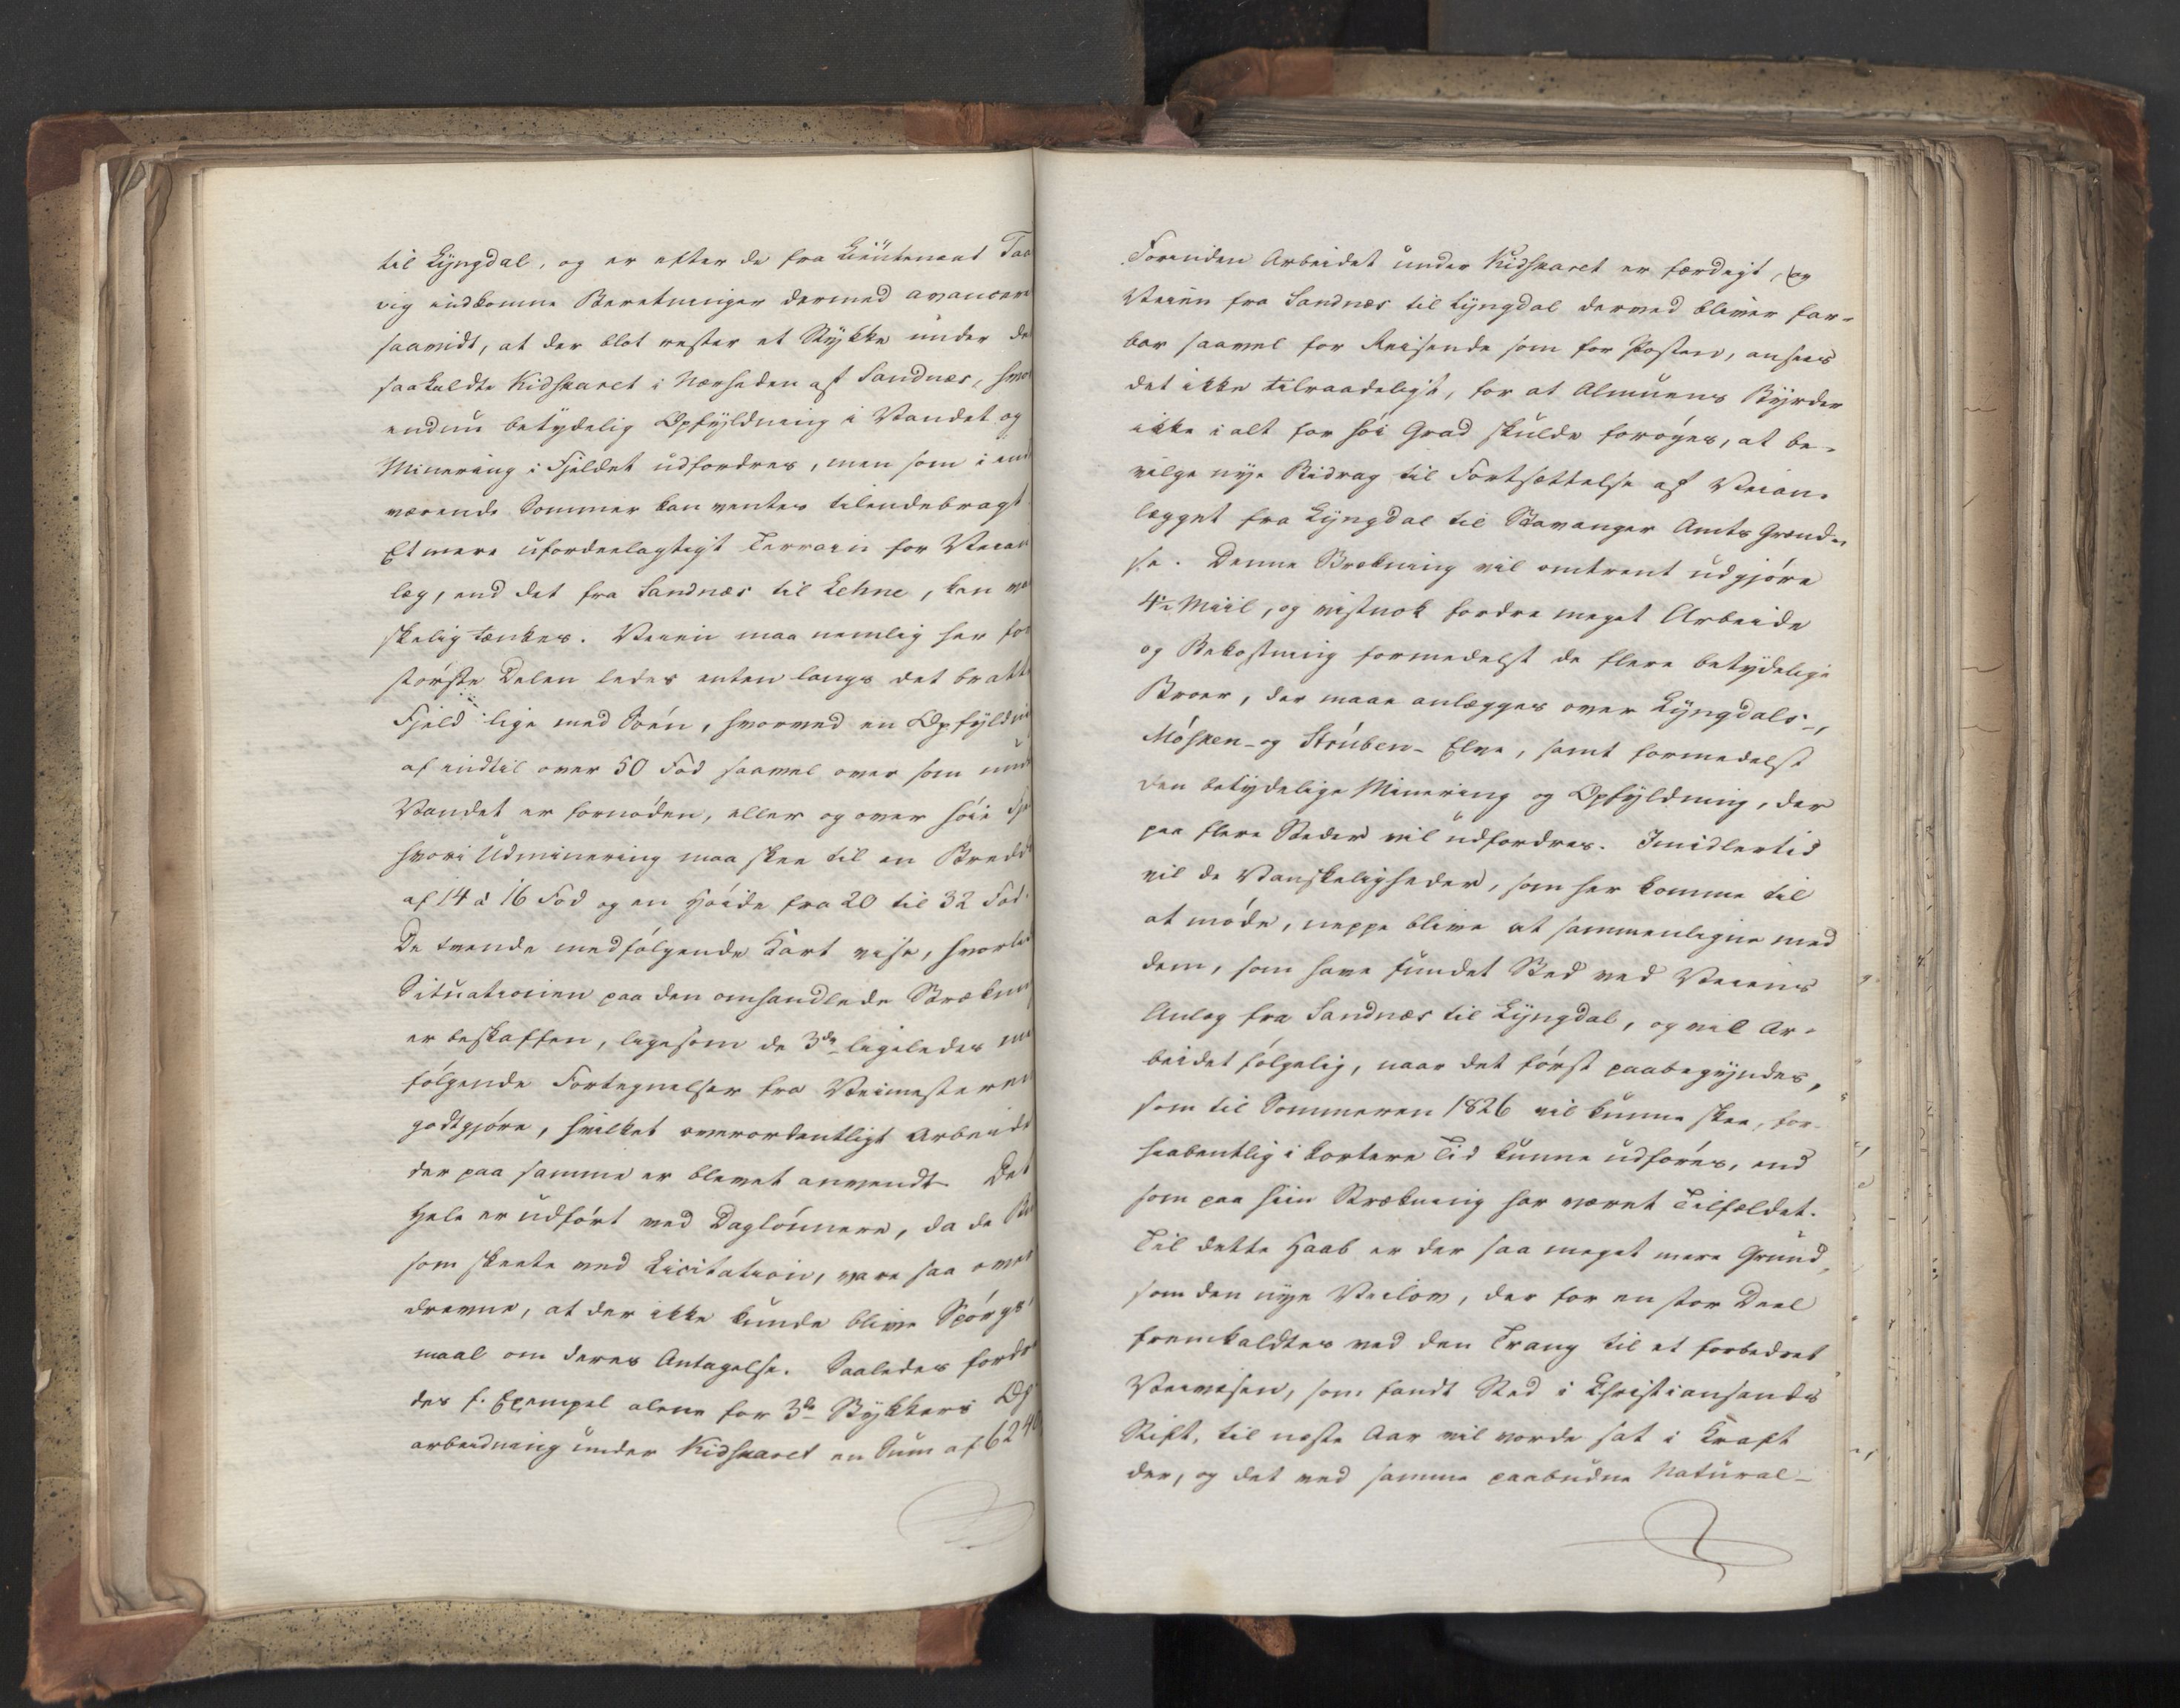 til Lÿngdal, og er efter de fra Lieutenant Taa
vig indkomne Beretninger dermed avancere
saavidt, at der blot rester et Stÿkke under de
saakaldte Kidskaret i Nærheden af Sandnæs, hvo
endnu betÿdelig Opfÿldning i Vandet og
Minering i Fjeldet udfordres, men som i end
værende Sommer kan ventes tilendebragt
Et mere ufordeelagtigt Terrain for Veian
læg, end det fra Sandnæs til Lehne, kan va
skelig tænkes. Veien maa nemlig her for
største Delen ledes enten langs det bratte
Fjeld lige med Søen, hvorved en Opfÿldni
af indtil over 50 Fod saavel over som und
Vandet er fornøden, eller og over høie Fje
hvori Udminering maa skee til en Bredde
af 14 à 16 Fod og en Høide fra 20 til 32 Fod.
De tvende medfølgende Kart vise, hvorled
Situationen paa den omhandlede Strækni
er beskaffen, ligesom de 3de ligeledes me
følgende Fortegnelser fra Veimesteren
godtgjøre, hvilket overordentligt Arbeide
der paa samme er blevet anvendt. Det
Hele er udført ved Daglønnere, da de Bu
som skeete ved Licitation, vare saa over
drevne, at der ikke kunde blive Spørgs
maal om deres Antagelse. Saaledes fordre
des f. Exempel alene for 3de Stÿkkers Op
arbeidning under Kidskaret en Sum af 6240
Forinden Arbeidet under Kidskaret er færdigt, og
Veien fra Sandnæs til Lÿngdal derved bliver far-
bar saavel for Reisende som for Posten, ansees
det ikke tilraadeligt, for at Almuens Bÿrder
ikke i alt for høi Grad skulde forøges, at be-
vilge nÿe Bidrag til Fortsættelse af Veian-
lægget fra Lÿngdal til Stavanger Amts Grænd-
se. Denne Strækning vil omtrent udgjøre
4½ Miil, og vistnok fordre meget Arbeide
og Bekostning formedelst de flere betÿdelige
Broer, der maae anlægges over Lÿngdals-,
Mósken- og Strúben- Elve, samt formedelst
den betÿdelige Minering og Opfÿldning, der
paa flere Steder vil udfordres. Imidlertid
vil de Vanskeligheder, som her komme til
at møde, neppe blive at sammenligne med
dem, som have fundet Sted ved Veiens
Anlæg fra Sandnæs til Lÿngdal, og vil Ar-
beidet følgelig, naar det først paabegÿndes,
som til Sommeren 1826 vil kunne skee, for-
haabentlig i kortere Tid kunne udføres, end
som paa hiin Strækning har været Tilfældet.
Til dette Haab er der saa meget mere Grund,
som den nÿe Veilov, der for en stor Deel
fremkaldtes ved den Trang til et forbedret
Veivæsen, som fandt Sted i Christiansands
Stift, til næste Aar vil vorde sat i Kraft
der, og det ved samme paabudne Natural-